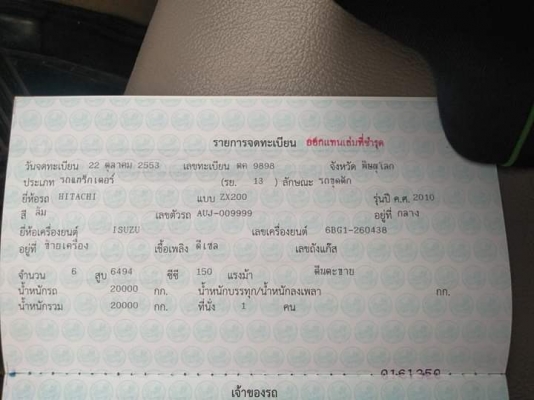 รายการจดทะเบียน ออกแทนเล่มที่ชำรุด
วันจดทะเบียน 22 ตุลาคม 2553 เลขทะเบียน ตค 9898 จังหวัด พิษณุโลก
ประเภท รถแทรกเตอร์ (รย. 13 ) ลักษณะ รถขุดตัก
ยี่ห้อรถ HITACHI แบบ ZX200 รุ่นปี ค.ศ. 2010
สี ส้ม เลขตัวรถ AUJ-009999 อยู่ที่ กลาง
ยี่ห้อเครื่องยนต์ ISUZU เลขเครื่องยนต์ 6BG1-260438
อยู่ที่ ซ้ายเครื่อง เชื้อเพลิง ดีเซล เลขถังแก๊ส
จำนวน 6 สูบ 6494 ซีซี 150 แรงม้า ตีนตะขาบ
น้ำหนักรถ 20000 กก. น้ำหนักบรรทุก/น้ำหนักลงเพลา กก.
น้ำหนักรวม 20000 กก. ที่นั่ง 1 คน
เจ้าของรถ